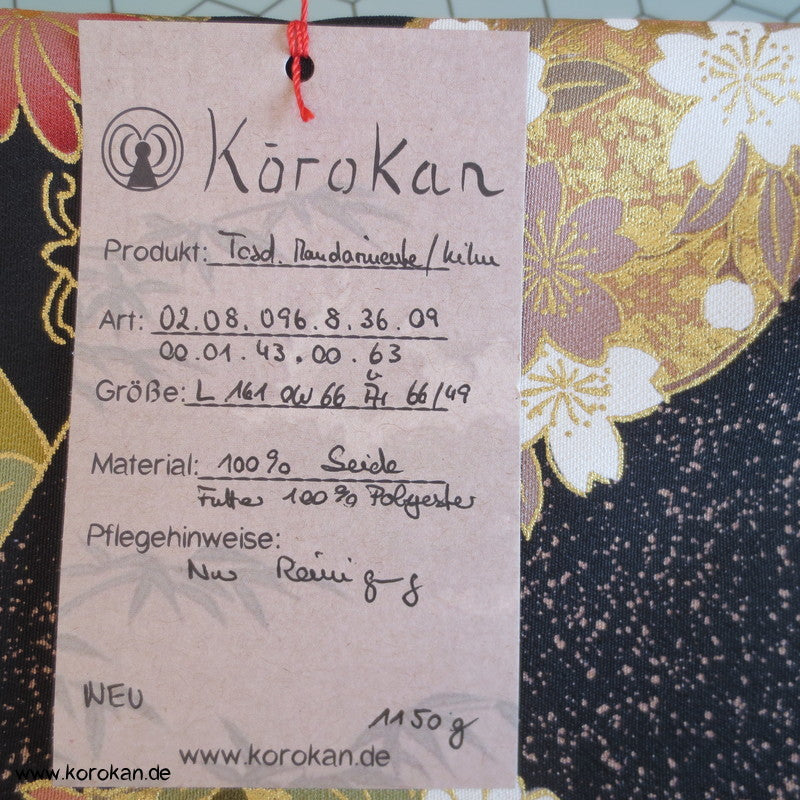 Kōrokan
Produkt: Tosd. Mandarinente/kiku
Art: 02.08.096.8.36.09
00.01.43.00.63
Größe: L 161 OW 66 Är 66/49
Material: 100% Seide
Futter 100% Polyester
Pflegehinweise:
Nur Reinigg
NEU
1150g
www.korokan.de
www.korokan.de